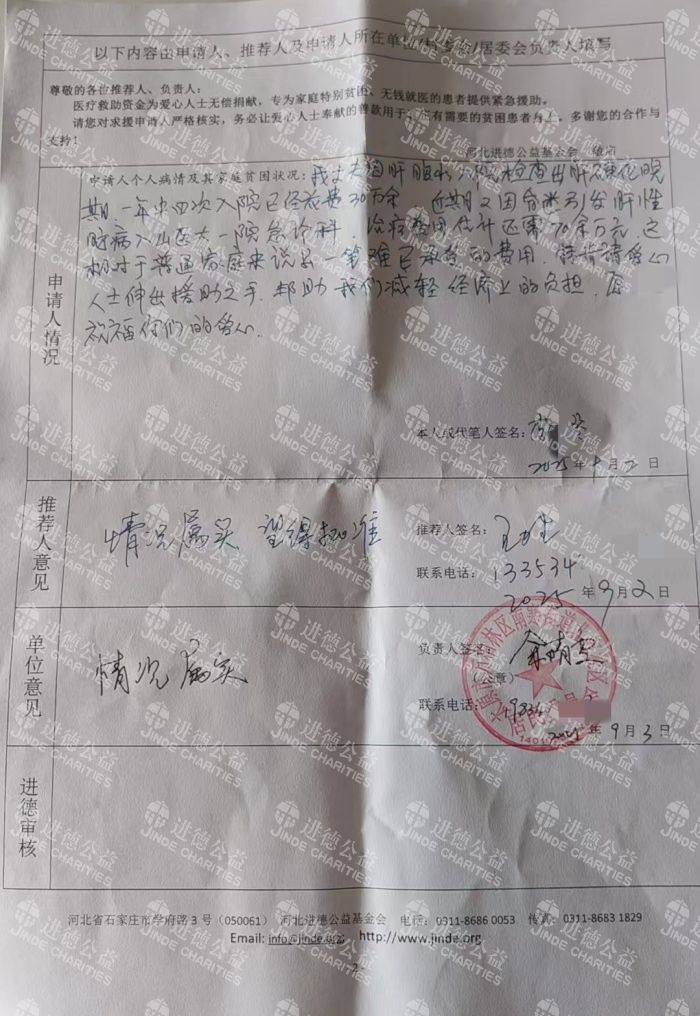 以下内容由申请人、推荐人及申请人所在单位/村委会/居委会负责人填写
尊敬的各位推荐人、负责人:
医疗救助资金为爱心人士无偿捐献,专为家庭特别贫困、无钱就医的患者提供紧急援助。
请您对求援申请人严格核实,务必让爱心人士奉献的善款用于真正有需要的贫困患者身上。多谢您的合作与
支持!
河北进德公益基金会 敬启
申请人情况
申请人个人病情及其家庭贫困状况:我丈夫因肝腹水入院检查出肝硬化晚
期.一年中四次入院已经花费30万余
近期又因
引发肝性
脑病入山医大一院急诊科,治疗费用估计还需70余万元,这
对于普通家庭来说是一笔难已承受的费用.
爱心
人士伸出援助之手,帮助我们减轻经济上的负担.
祝福你们的爱心.
本人或代笔人签名:
2025年9月2日
推荐人意见
情况属实 望得批准
推荐人签名:
联系电话:133534
2025年9月2日
单位意见
情况属实
负责人签名:
(公章)
联系电话:
年9月3日
进德审核
河北省石家庄市学府路3号(050061) 河北进德公益基金会 电话:0311-8686 0053 传真:0311-8683 1829
Email: info@jinde.org http://www.jinde.org
2
进德公益
JINDE CHARITIES